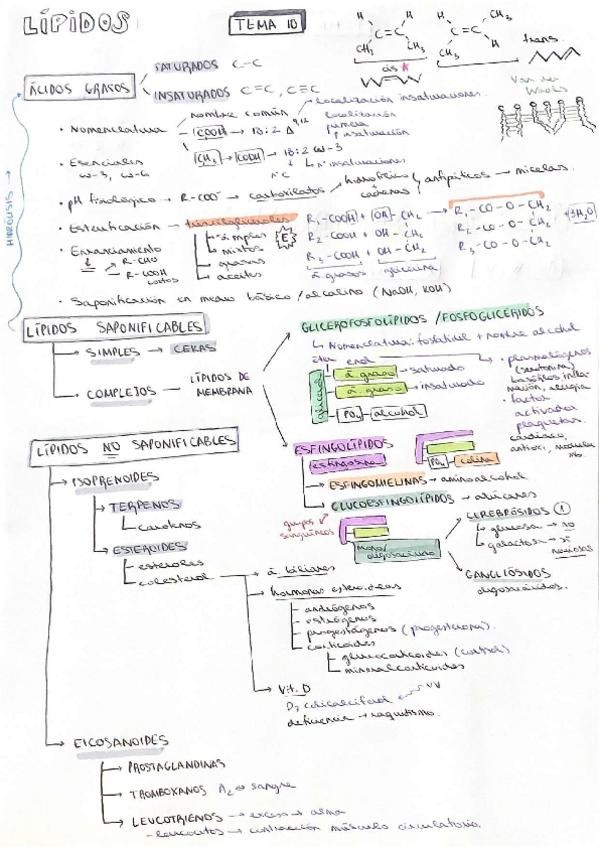 LÍPIDOS
TEMA 10
H H H CH3
C=C C=C
CH3 CH3 CH3 H
cis trans
Van der Waals
ÁCIDOS GRASOS
SATURADOS C-C
INSATURADOS C=C, C≡C
• Nomenclatura
nombre común
COOH → 18:2 Δ9,12
localización insaturaciones
localización primera insaturación
CH3 → COOH → 18:2 ω-3
nºC nº insaturaciones
• Esenciales
ω-3, ω-6
• pH fisiológico → R-COO- → carboxilatos → hidrofílico cadenas antipáticos → micelas
• Esterificación → triacilgliceroles
simples
mixtos
grasas
aceites
E
R1-COOH + OH-CH2
R2-COOH + OH-CH2
R3-COOH + OH-CH2
á. grasos glicerina
R1-CO-O-CH2
R2-CO-O-CH2
R3-CO-O-CH2
3H2O
• Enranciamiento
R-CHO
R-COOH
cortos
• Saponificación en medio básico/alcalino (NaOH, KOH)
HIDRÓLISIS
LÍPIDOS SAPONIFICABLES
SIMPLES → CERAS
COMPLEJOS → LÍPIDOS DE MEMBRANA
GLICEROFOSFOLÍPIDOS / FOSFOGLICÉRIDOS
Nomenclatura: fosfatidil + nombre alcohol
éter enol
á. graso → saturado
á. graso → insaturado
PO4 alcohol
• plasmalógenos
• factor activador plaquetas
ESFINGOLÍPIDOS
esfingosina
PO4 colina
ESFINGOMIELINAS → aminoalcohol
GLUCOESFINGOLÍPIDOS → azúcares
grupos sanguíneos
mono/oligosacárido
CEREBRÓSIDOS 1
glucosa → no
galactosa → sí
nerviosas
GANGLIÓSIDOS
oligosacáridos
LÍPIDOS NO SAPONIFICABLES
ISOPRENOIDES
TERPENOS
carotenos
ESTEROIDES
esteroles
colesterol
á. biliares
hormonas esteroideas
andrógenos
estrógenos
progestágenos (progesterona)
corticoides
glucocorticoides (cortisol)
mineralcorticoides
Vit. D
D3 colecalciferol UV
deficiencia → raquitismo.
EICOSANOIDES
PROSTAGLANDINAS
TROMBOXANOS A2 → sangre
LEUCOTRIENOS → exceso → asma
- leucocitos → contracción músculo circulatorio.